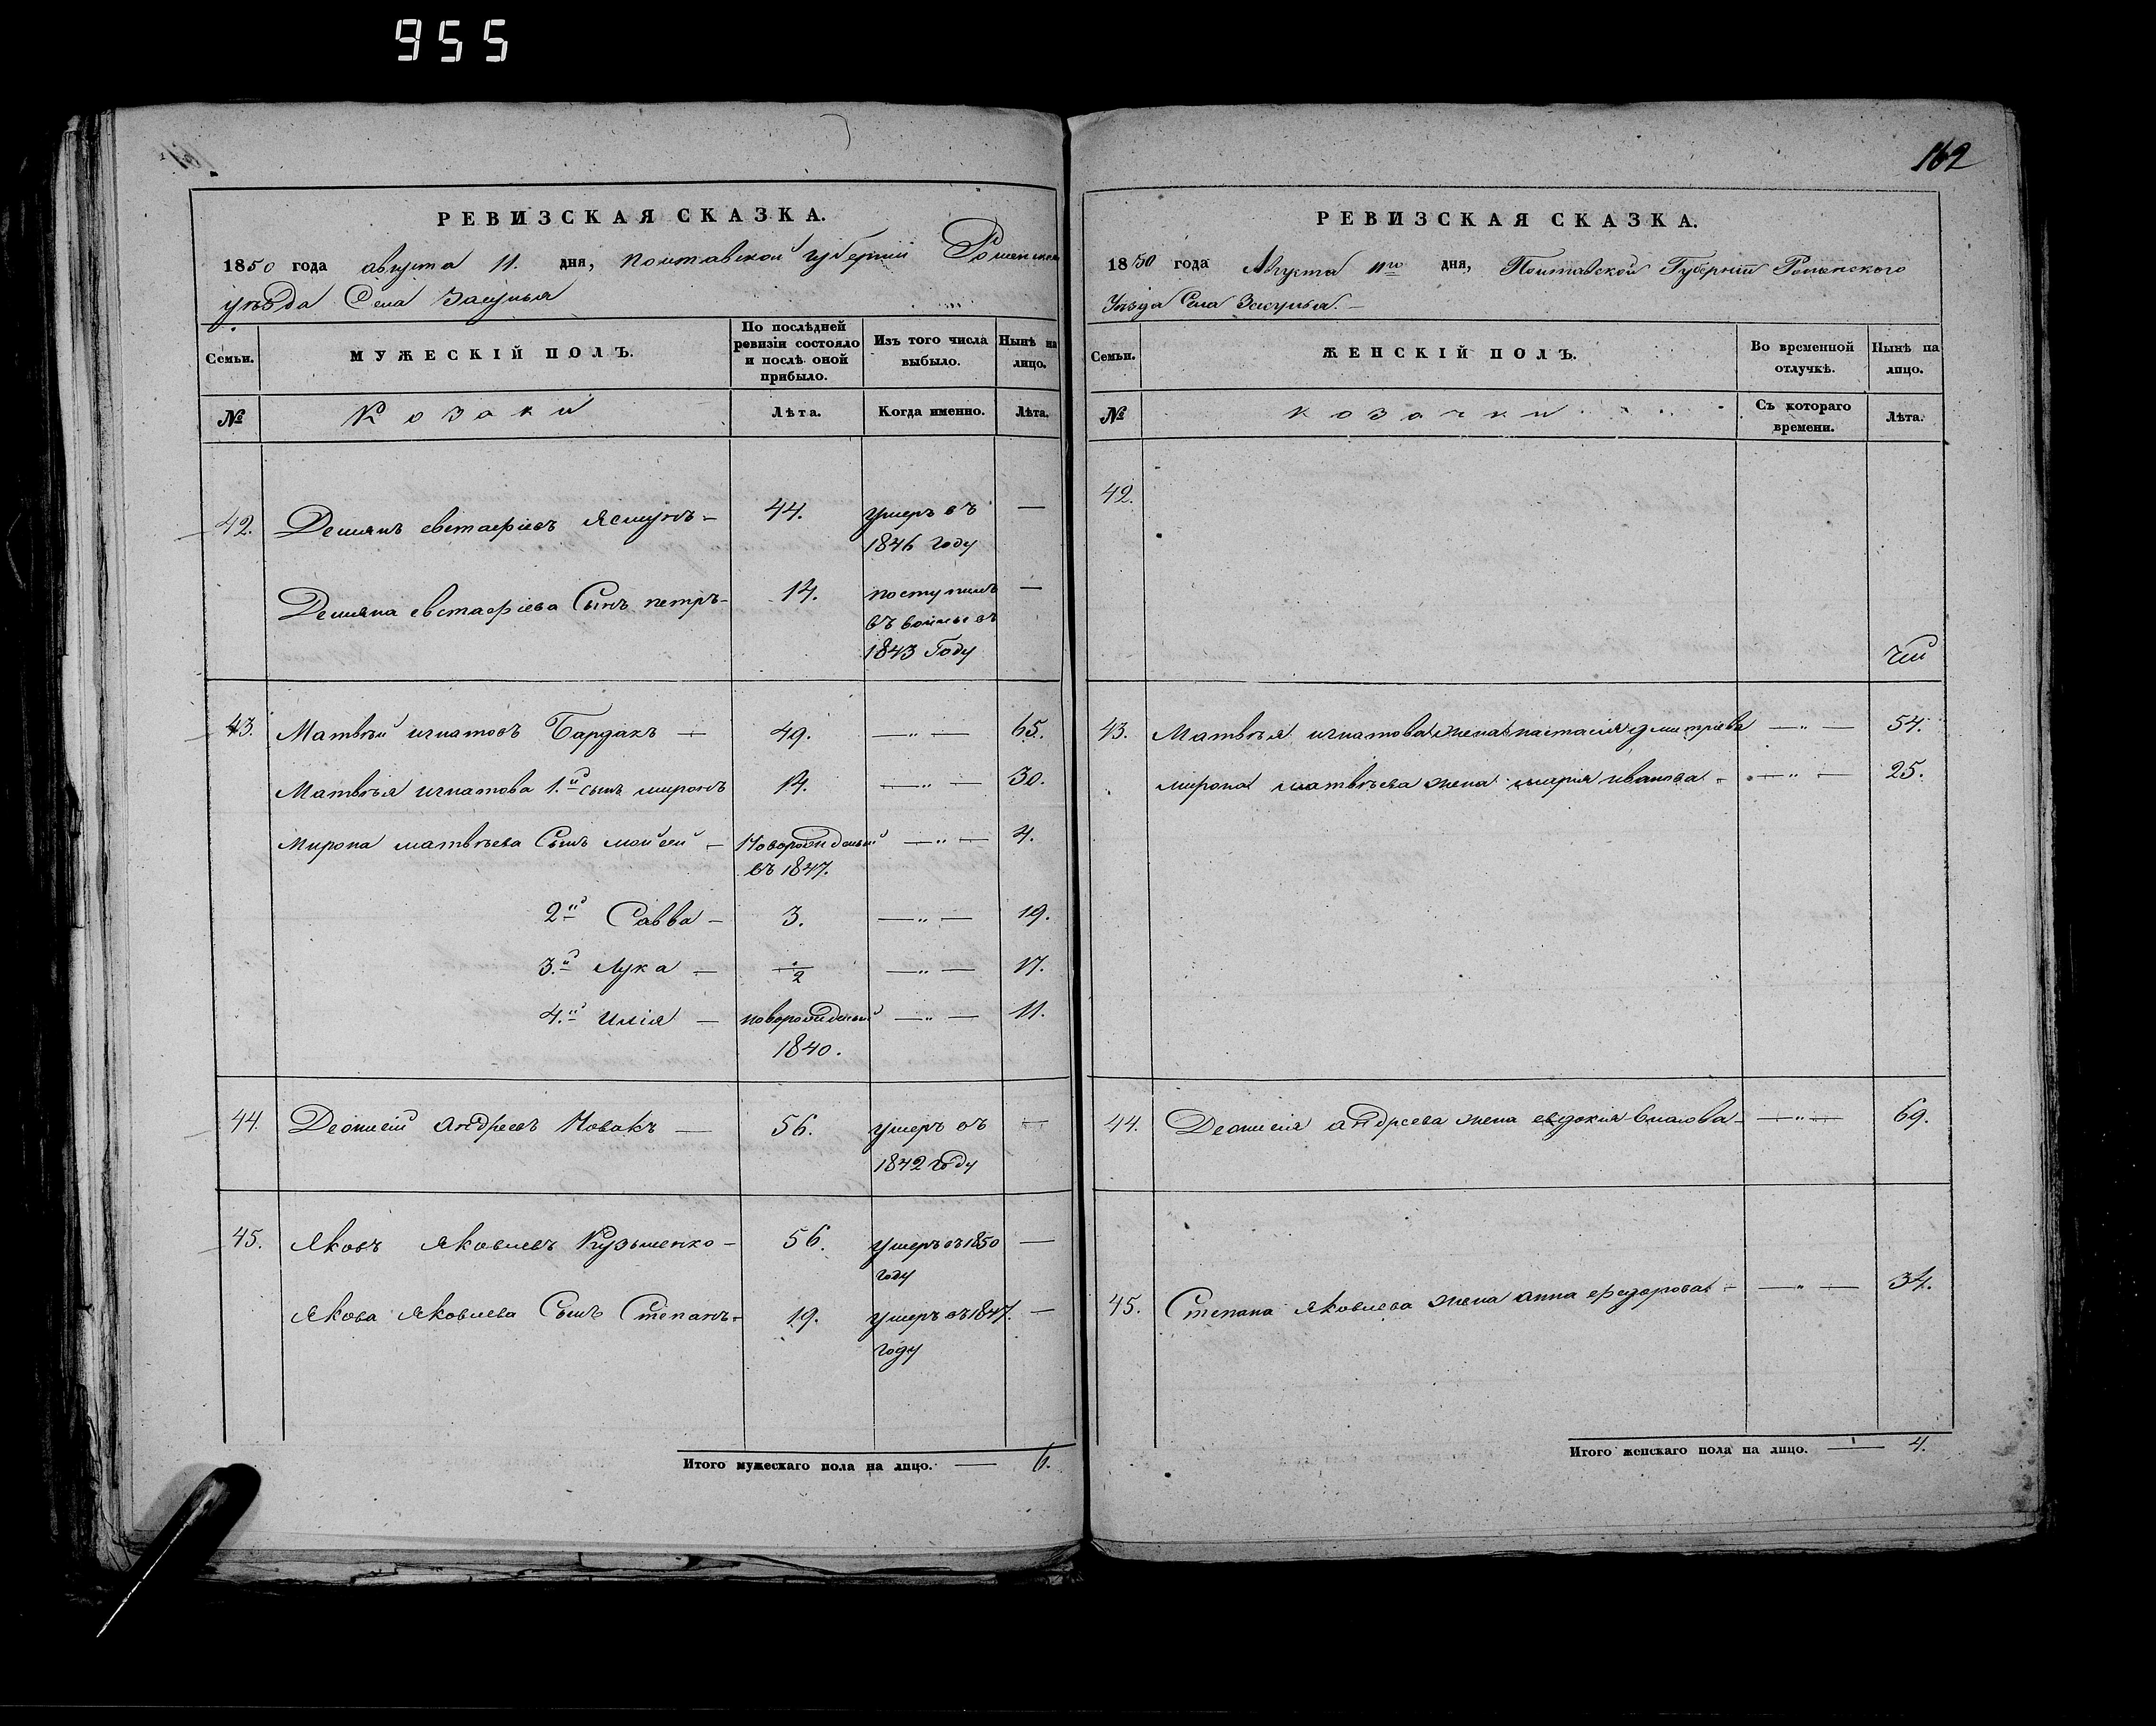 955
162
РЕВИЗСКАЯ СКАЗКА.
1850 года августа 11. дня, полтавской губерніи Роменского
уѣзда Села Засулья
Семьи. МУЖЕСКІЙ ПОЛЪ. По послѣдней ревизіи состояло и послѣ оной прибыло. Изъ того числа выбыло. Нынѣ на лицо.
№ Козаки Лѣта. Когда именно. Лѣта.
42. Демянъ евстафіевъ 44. умеръ въ —
1846 году
Демяна евстафіева Сынъ петръ — 14. поступилъ —
въ
1843 Году
43. Матвѣй игнатовъ Бардакъ — 49. — " — 65.
Матвѣя игнатова 1.й сынъ миронъ 14. — " — 30.
Мирона матвѣева Сынъ мойсей — Новорожденый — " — 4.
въ 1847.
2й Савва — 3. — " — 19.
3.й Лука — ½ — " — 17.
4.й Илія — новорожденый — " — 11.
1840.
44. Деонисій андреевъ Новакъ — 56. умеръ въ —
1842 году
45. Яковъ Яковлевъ Кузьменко — 56. умеръ въ 1850 —
году
Якова Яковлева Сынъ Степанъ — 19. умеръ въ 1847. —
году
Итого мужескаго пола на лицо. — 6.
РЕВИЗСКАЯ СКАЗКА.
1850 года Августа 11го дня, Полтавской Губерніи Роменского
Уѣзда Села Засулья. —
Семьи. ЖЕНСКІЙ ПОЛЪ. Во временной отлучкѣ. Нынѣ на лицо.
№ козачки Съ котораго времени. Лѣта.
42.
43. Матвѣя игнатова жена настасія дмитріева — " — 54.
мирона матвѣева жена марія иванова — — " — 25.
44. Деонисія андреева жена евдокія власова — — " — 69.
45. Степана Яковлева жена анна федорова — — " — 34.
Итого женскаго пола на лицо. — 4.